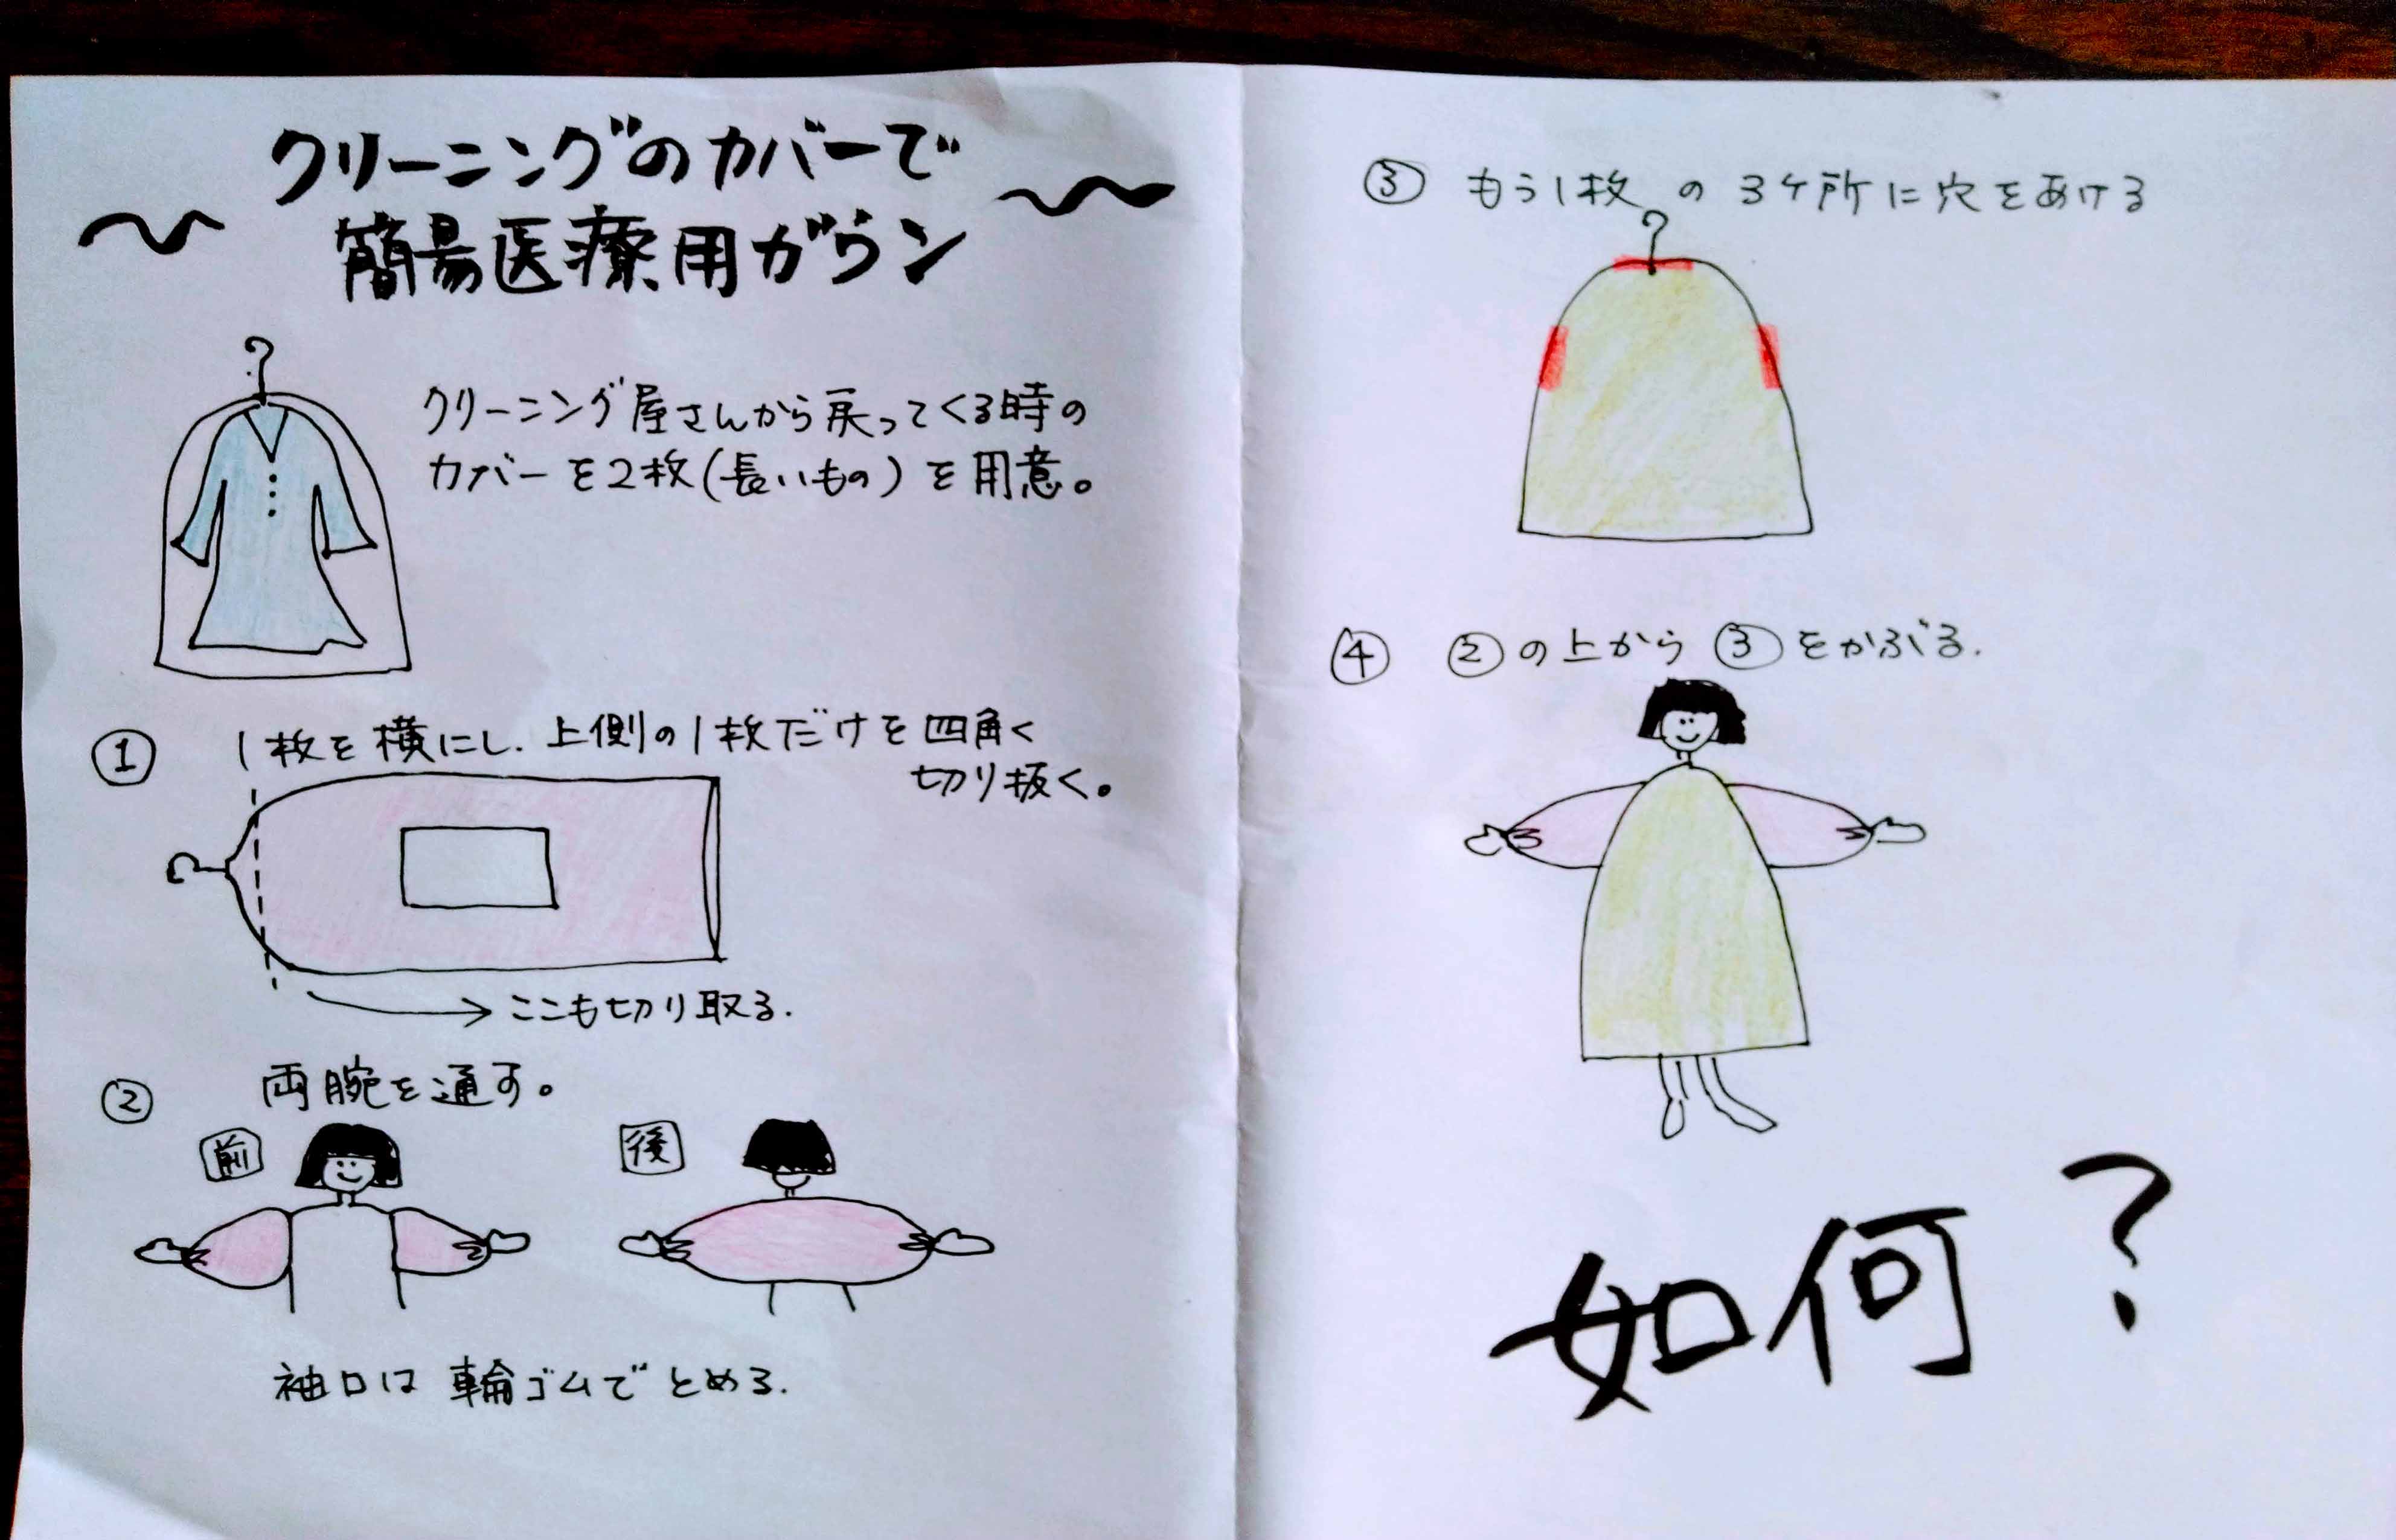 クリーニングのカバーで
簡易医療用ガウン
クリーニング屋さんから戻ってくる時の
カバーを2枚(長いもの)を用意。
① 1枚を横にし、上側の1枚だけを四角く
切り抜く。
ここも切り取る.
② 両腕を通す。
前
後
袖口は輪ゴムでとめる.
③ もう1枚の3ヶ所に穴をあける
④ ②の上から③をかぶる.
如何?